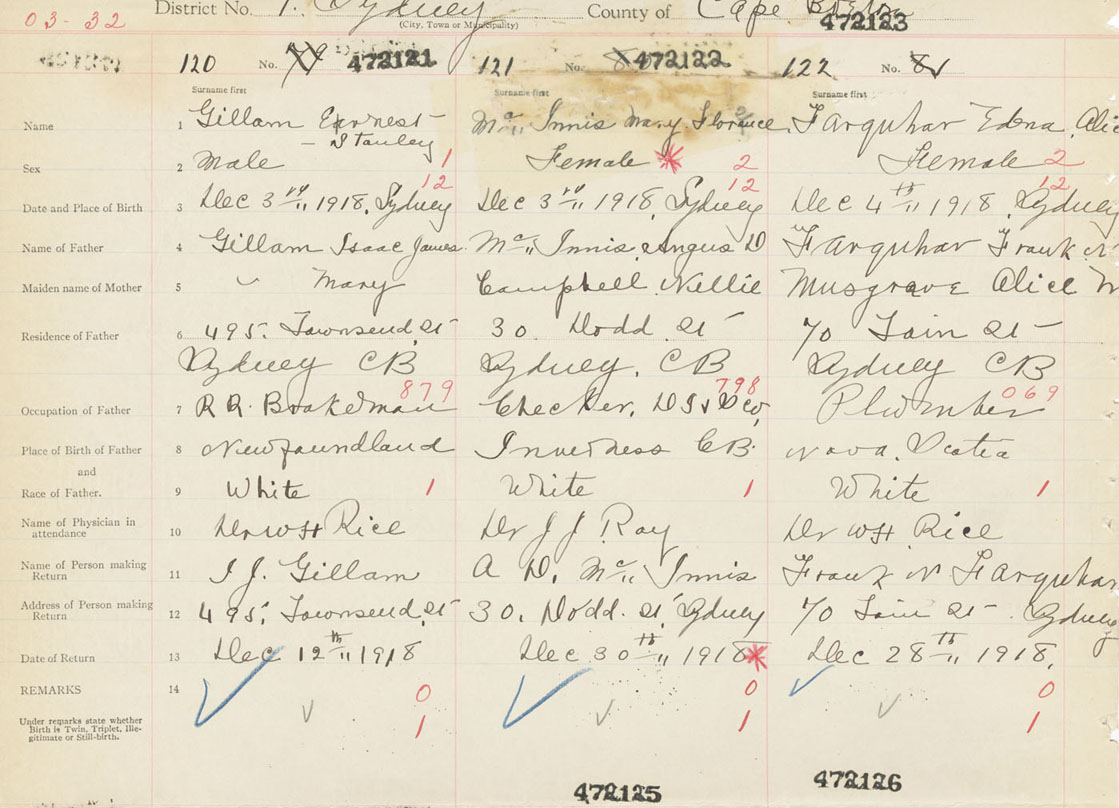 03-32
District No. 1. Sydney County of Cape Breton
(City, Town or Municipality) 472123
120 No. 79 472121 121 No. 472122 122 No. 81
Surname first Surname first Surname first
Name 1 Gillam Earnest Mc Innis Mary Florence Farquhar Edna Alic
- Stanley
Sex 2 Male 1 Female * 2 Female 2
12 12 12
Date and Place of Birth 3 Dec 3rd 1918, Sydney Dec 3rd 1918, Sydney Dec 4th 1918, Sydney
Name of Father 4 Gillam Isaac James Mc Innis, Angus D Farquhar Frank N
Maiden name of Mother 5 " Mary Campbell Nellie Musgrave Alice M
Residence of Father 6 495. Townsend St 30 Dodd St 70 St
Sydney CB Sydney, CB Sydney CB
879 798 069
Occupation of Father 7 R R. Brakeman Checker, D I & S Co, Plumber
Place of Birth of Father 8 Newfoundland Inverness CB. Nova, Scotia
and
Race of Father. 9 White 1 White 1 White 1
Name of Physician in
attendance 10 Dr WH Rice Dr J J Roy Dr WH. Rice
Name of Person making
Return 11 I J. Gillam A D, Mc Innis Frank N Farquhar
Address of Person making
Return 12 495. Townsend, St 30, Dodd. St, Sydney 70 St Sydney
Date of Return 13 Dec 12th 1918 Dec 30th 1918 * Dec 28th 1918,
REMARKS 14 0 0 0
Under remarks state whether
Birth is Twin, Triplet, Ille-
gitimate or Still-birth.
1 1 1
472125 472126